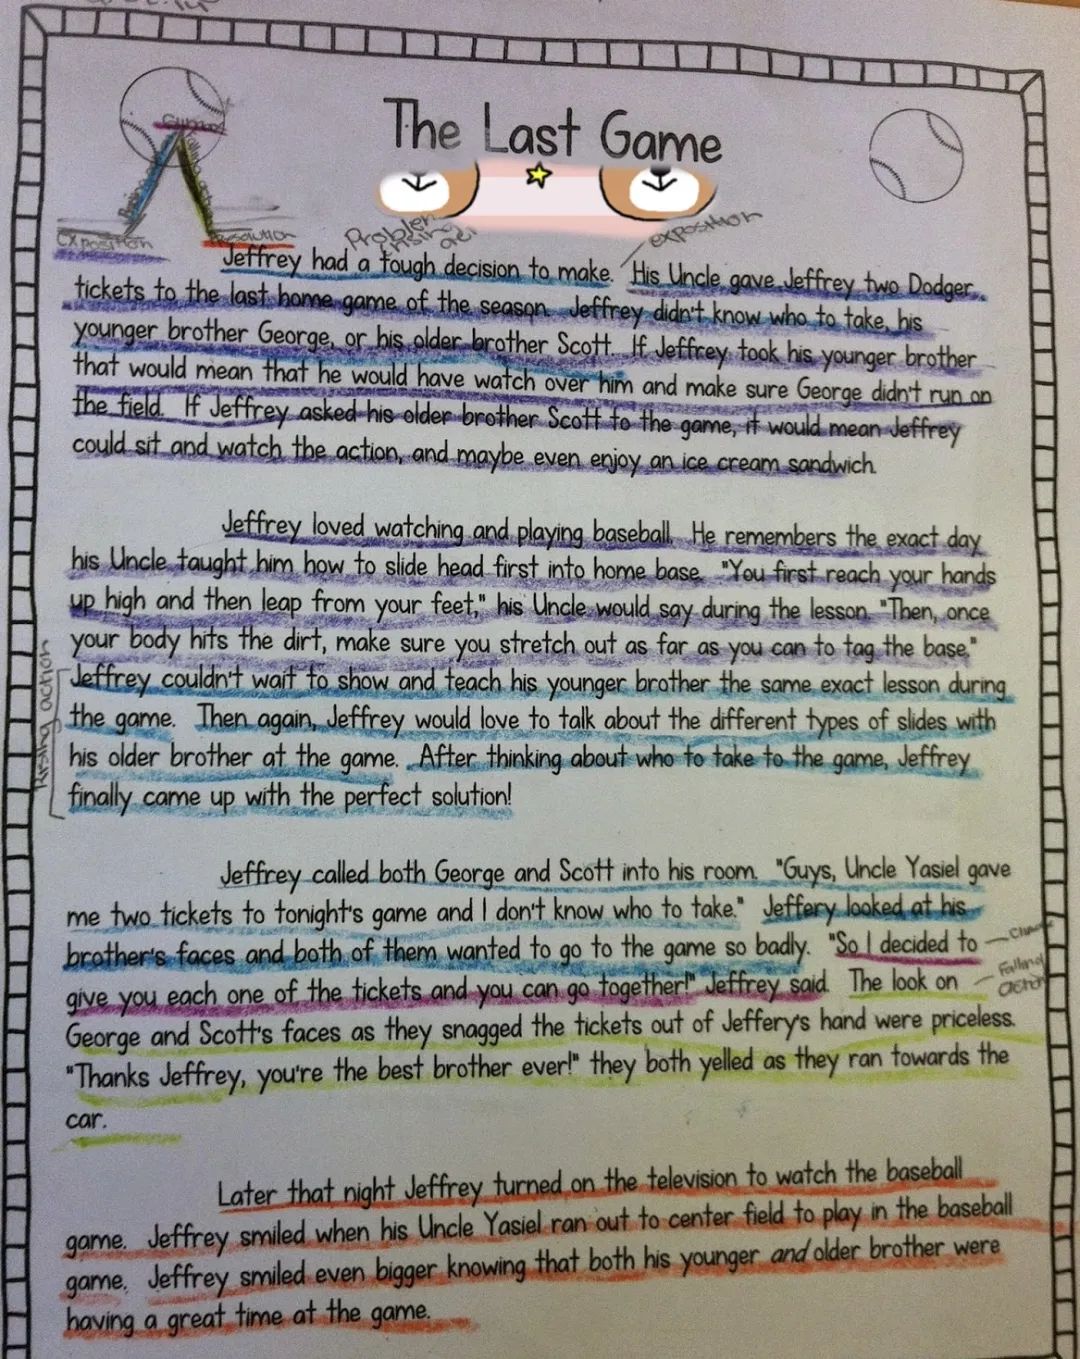 The Last Game
exposition
resolution
Problem
rising
exposition
Jeffrey had a tough decision to make. His Uncle gave Jeffrey two Dodger
tickets to the last home game of the season. Jeffrey didn't know who to take, his
younger brother George, or his older brother Scott. If Jeffrey took his younger brother
that would mean that he would have watch over him and make sure George didn't run on
the field. If Jeffrey asked his older brother Scott to the game, it would mean Jeffrey
could sit and watch the action, and maybe even enjoy an ice cream sandwich.
Jeffrey loved watching and playing baseball. He remembers the exact day
his Uncle taught him how to slide head first into home base. "You first reach your hands
up high and then leap from your feet," his Uncle would say during the lesson. "Then, once
your body hits the dirt, make sure you stretch out as far as you can to tag the base."
Jeffrey couldn't wait to show and teach his younger brother the same exact lesson during
the game. Then again, Jeffrey would love to talk about the different types of slides with
his older brother at the game. After thinking about who to take to the game, Jeffrey
finally came up with the perfect solution!
Rising action
Jeffrey called both George and Scott into his room. "Guys, Uncle Yasiel gave
me two tickets to tonight's game and I don't know who to take." Jeffery looked at his
brother's faces and both of them wanted to go to the game so badly. "So I decided to
give you each one of the tickets and you can go together!" Jeffrey said. The look on
Falling
action
George and Scott's faces as they snagged the tickets out of Jeffery's hand were priceless.
"Thanks Jeffrey, you're the best brother ever!" they both yelled as they ran towards the
car.
Later that night Jeffrey turned on the television to watch the baseball
game. Jeffrey smiled when his Uncle Yasiel ran out to center field to play in the baseball
game. Jeffrey smiled even bigger knowing that both his younger and older brother were
having a great time at the game.